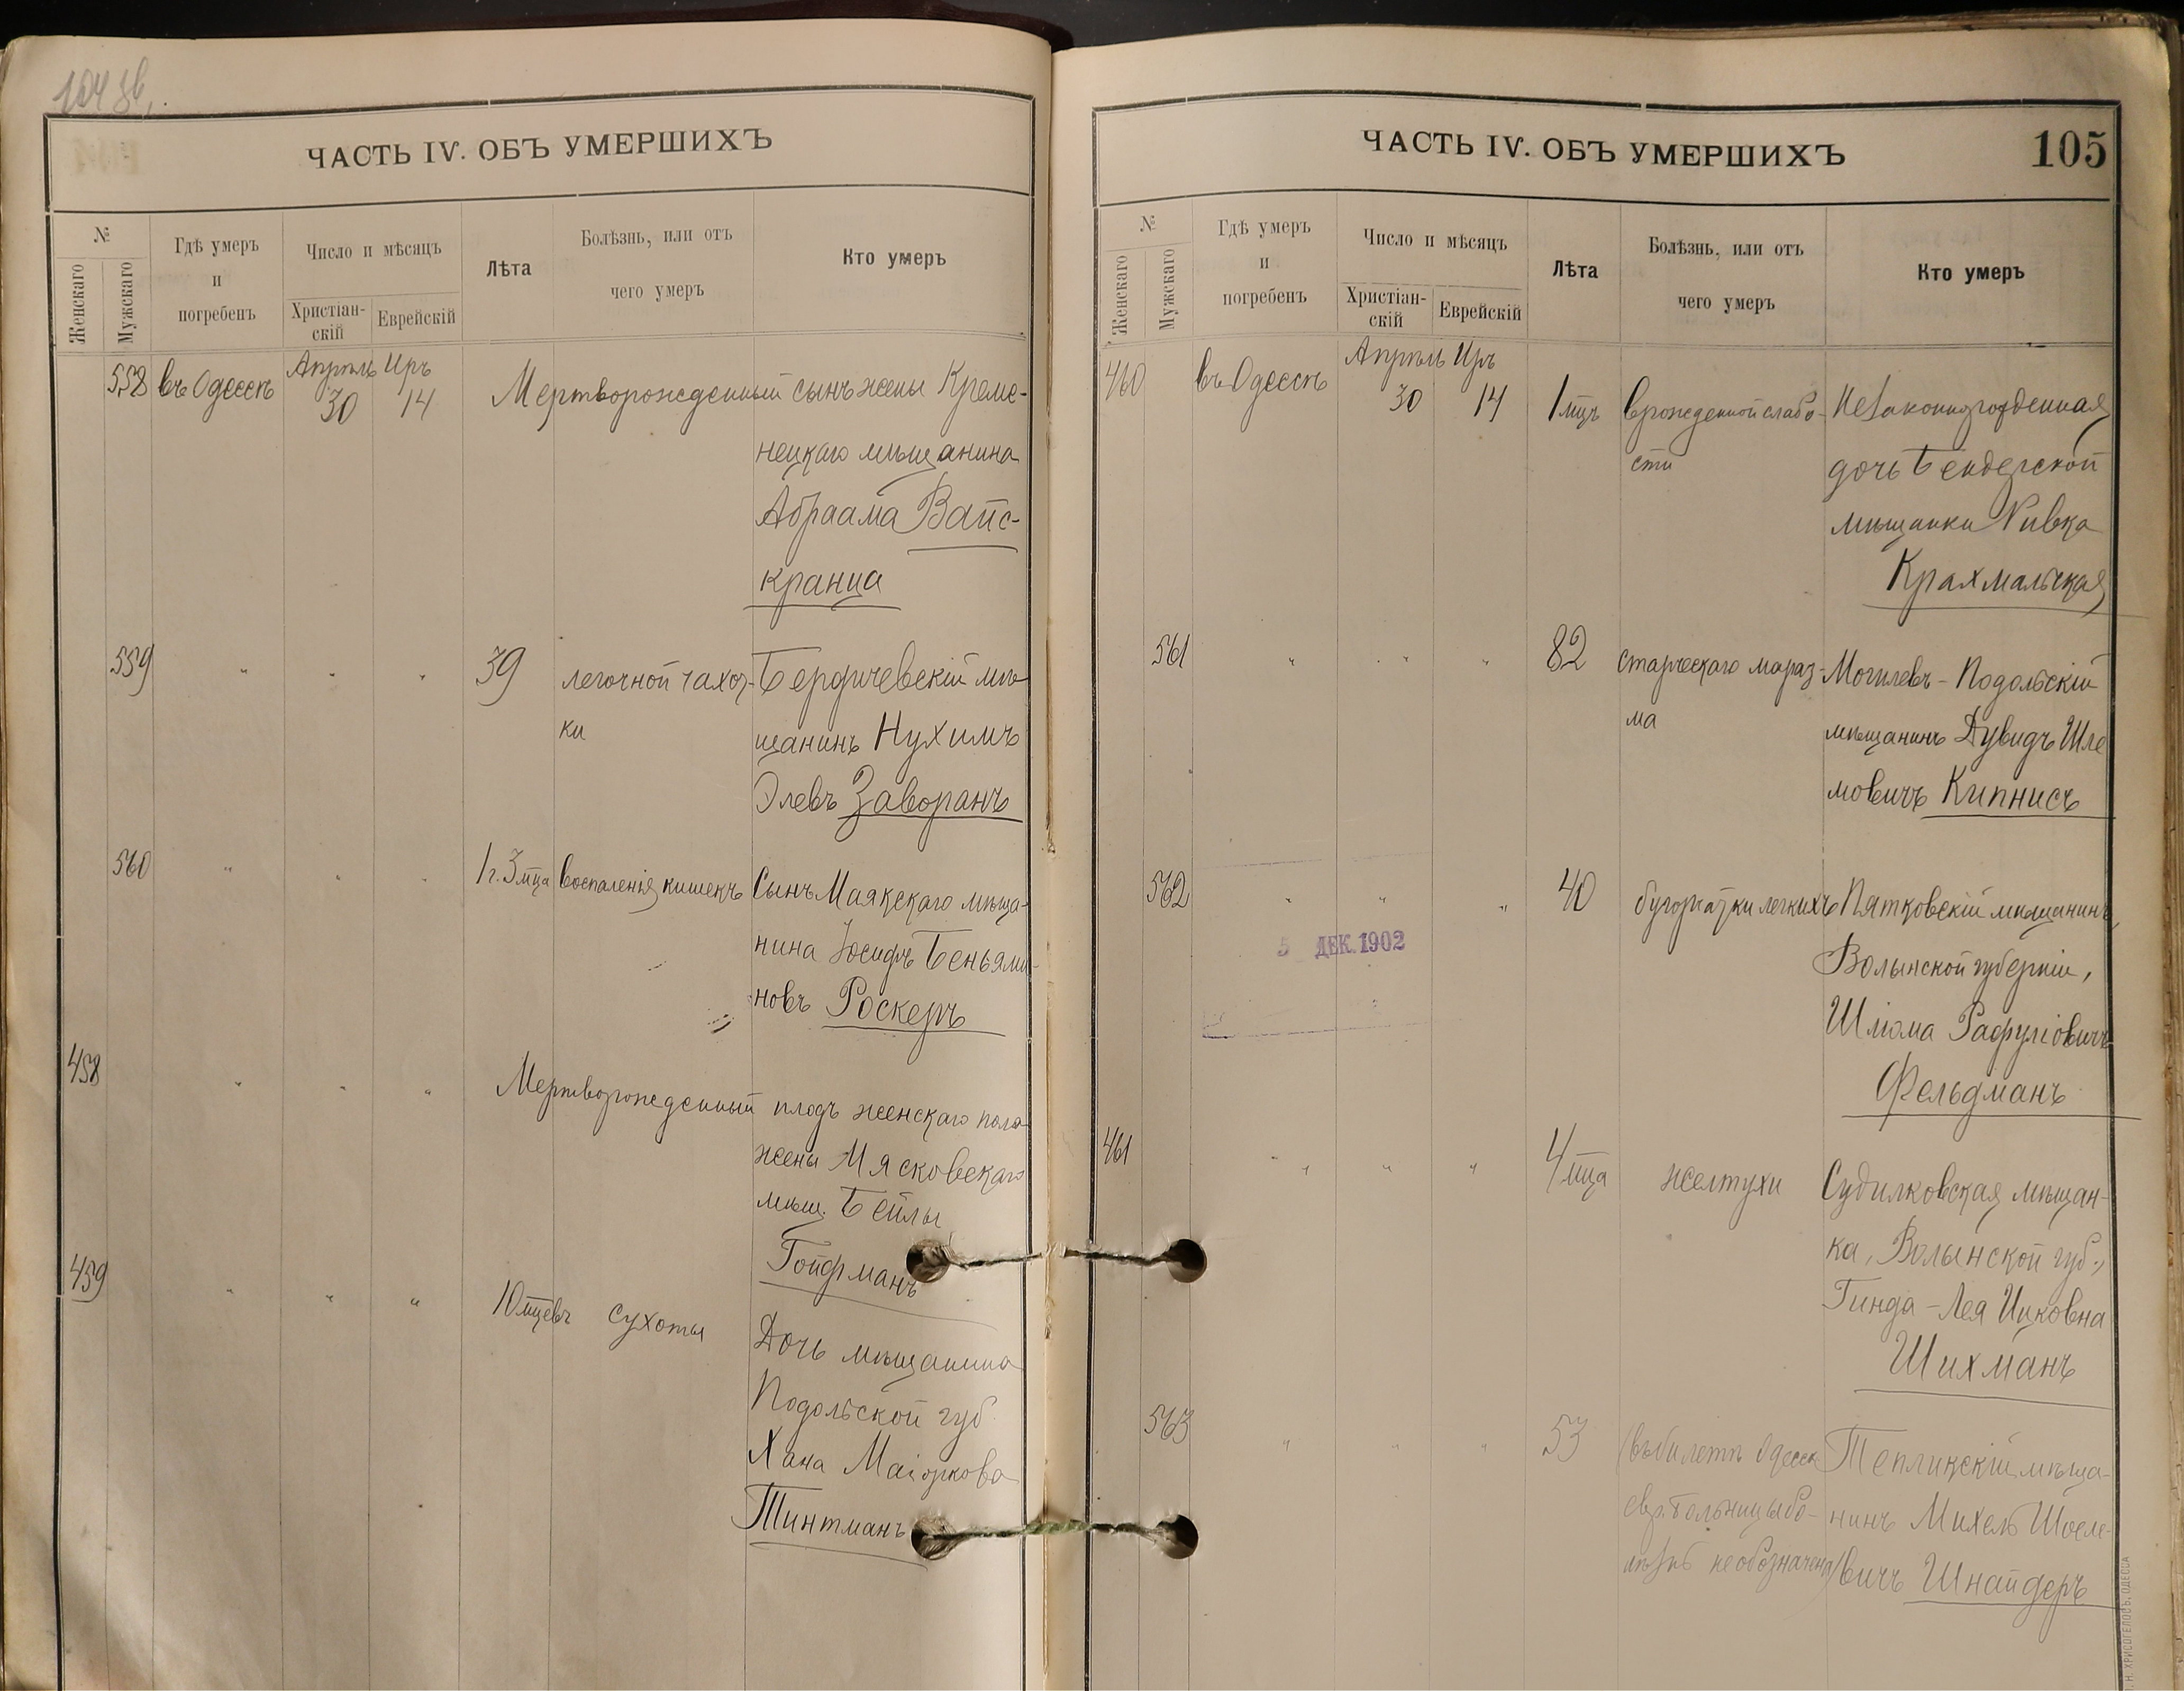 104 зв.
ЧАСТЬ IV. ОБЪ УМЕРШИХЪ
№
Женскаго
Мужскаго
Гдѣ умеръ
и
погребенъ
Число и мѣсяцъ
Христіан-
скій
Еврейскій
Лѣта
Болѣзнь, или отъ
чего умеръ
Кто умеръ
558 въ Одессѣ Апрѣль 30 Иръ 14 Мертворожденный сынъ жены Креме-
нецкаго мѣщанина
Абраама Вайс-
кранца
559 " " " 39 легочной чахот-
ки
Бердичевскій мѣ
щанинъ Нухимъ
Элевъ Заворанъ
560 " " " 1 г. 3 мца воспаленія кишекъ
Сынъ Маякскаго мѣща-
нина Іосифъ Беньями-
новъ Роскеръ
458 " " " Мертворожденный плодъ женскаго пола
жены Мясковскаго
мѣщ. Бейлы
Гойфманъ
459 " " " 10 мцевъ сухоты
Дочь мѣщанина
Подольской губ
Хана Маіоркова
Тинтманъ
ЧАСТЬ IV. ОБЪ УМЕРШИХЪ
105
№
Женскаго
Мужскаго
Гдѣ умеръ
и
погребенъ
Число и мѣсяцъ
Христіан-
скій
Еврейскій
Лѣта
Болѣзнь, или отъ
чего умеръ
Кто умеръ
460 въ Одессѣ Апрѣль 30 Иръ 14 1 мцъ врожденной слабо-
сти
Незаконнорожденная
дочь Бендерской
мѣщанки Ривка
Крахмальская
561 " " " 82 старческаго мараз-
ма
Могилевъ-Подольскій
мѣщанинъ Дувидъ Шле
мовичъ Кипнисъ
562 " " " 40 бугорчатки легкихъ
Пятковскій мѣщанинъ,
Волынской губерніи,
Шлiома Рафуловичъ
Фельдманъ
5 ДЕК. 1902
461 " " " 4 мца желтухи
Судилковская мѣщан-
ка, Волынской губ.,
Гинда-Лея Ицковна
Шихманъ
563 " " " 53 (въ билетѣ Одесск
евр. больницы бо-
лѣзнь не обозначена)
Тепликскій мѣща-
нинъ Михель Шоеле-
вичъ Шнайдеръ
Н. ХРИСОГЕЛОСЪ, ОДЕССА